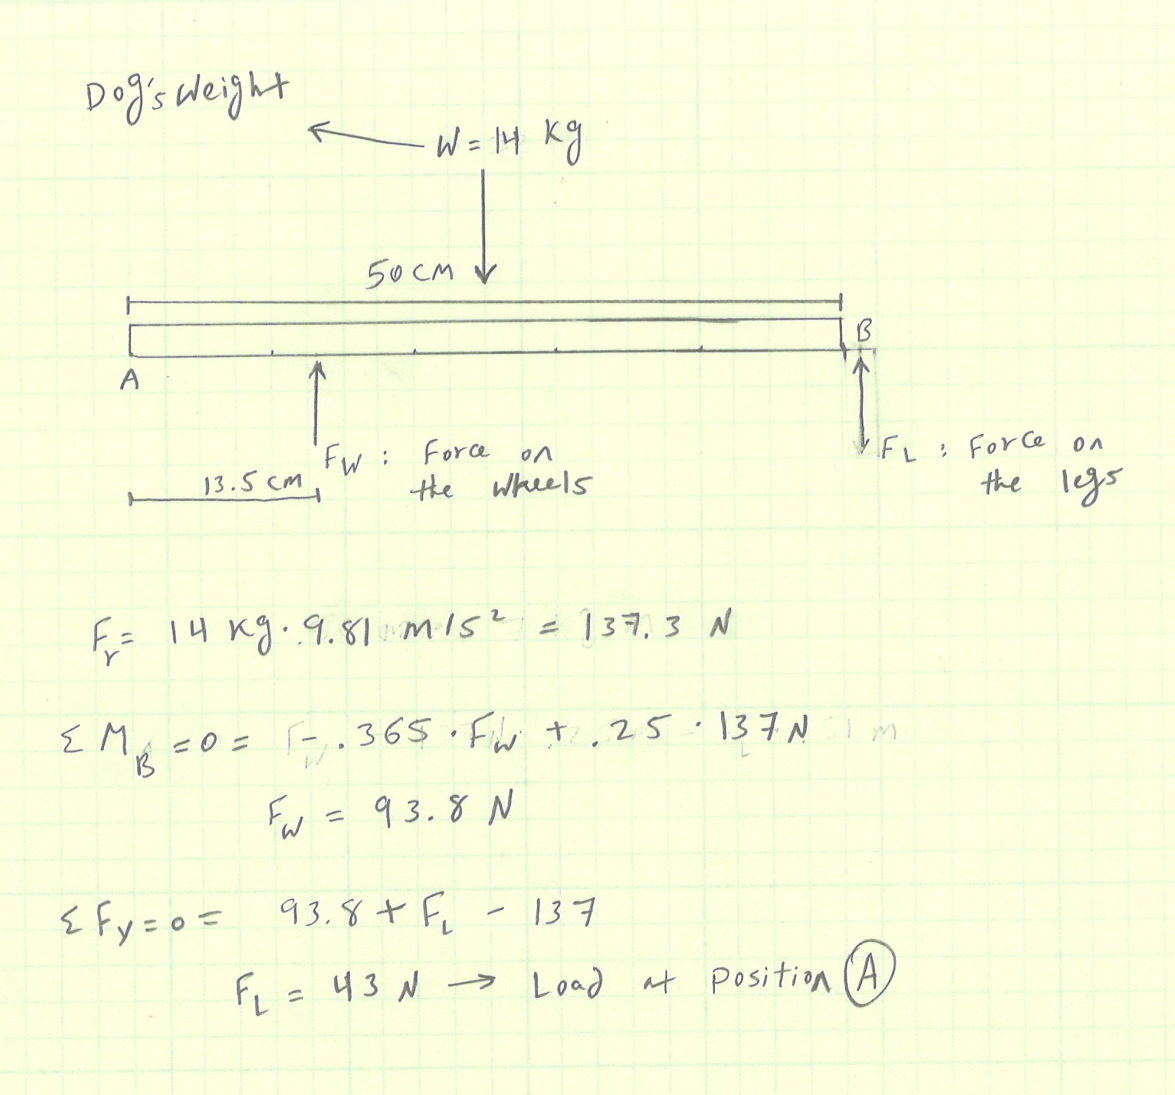 Dog's Weight
W = 14 Kg
50 cm
A
B
FW : Force on
the wheels
13.5 cm
FL : Force on
the legs
Fr = 14 kg · 9.81 m/s² = 137.3 N
Σ MB = 0 = - .365 · FW + .25 · 137 N
FW = 93.8 N
Σ Fy = 0 = 93.8 + FL - 137
FL = 43 N → Load at position A